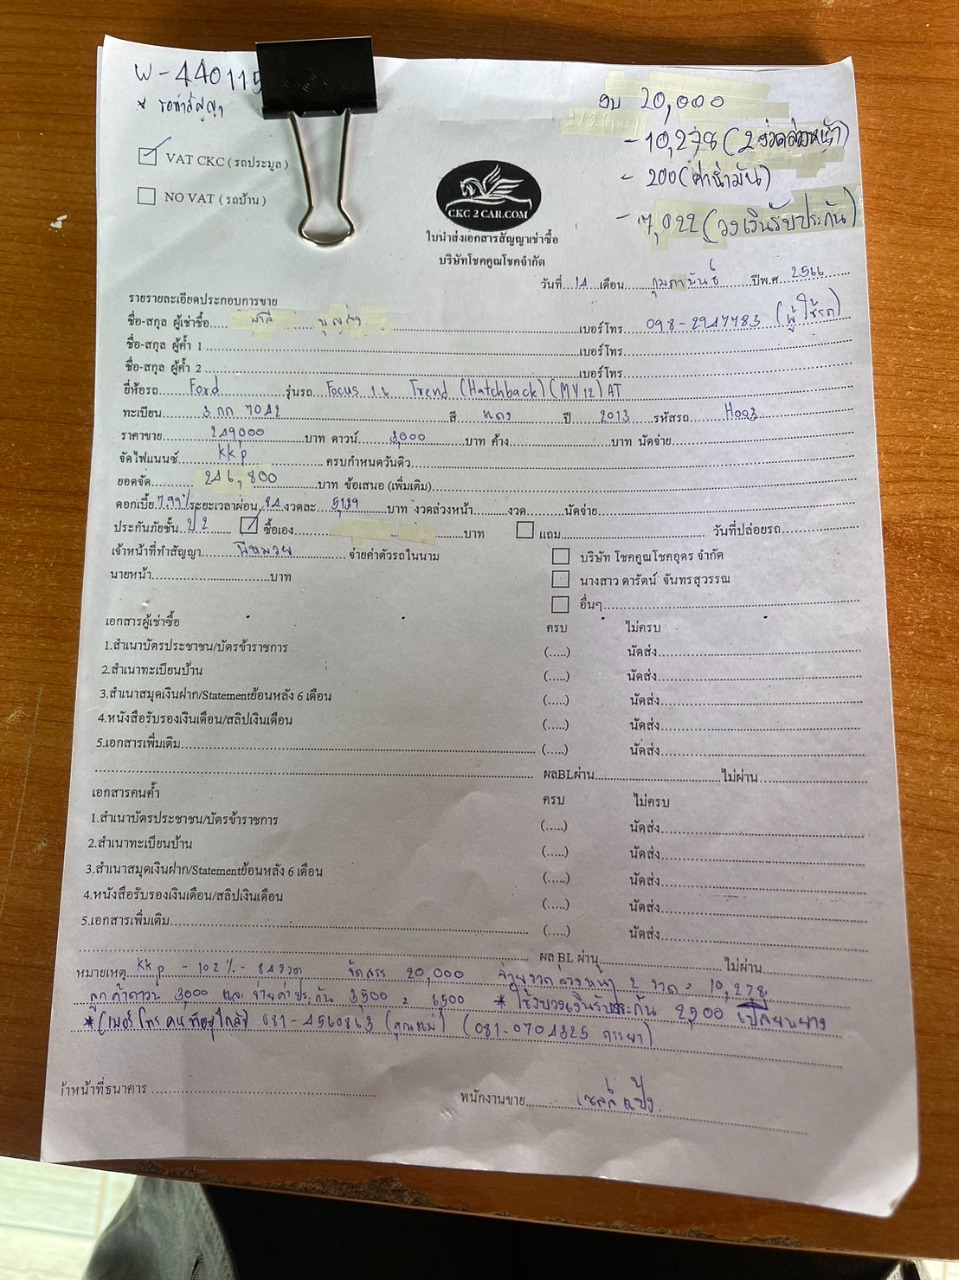 W-440115
* รอทำสัญญา
งบ 20,000
- 10,278 (2 งวดล่วงหน้า)
- 200 (ค่าน้ำมัน)
- 7,022 (วงเงินรับประกัน)
VAT CKC ( รถประมูล )
NO VAT ( รถบ้าน )
CKC 2 CAR.COM
ใบนำส่งเอกสารสัญญาเช่าซื้อ
บริษัทโชคคูณโชคจำกัด
วันที่ 14 เดือน กุมภาพันธ์ ปีพ.ศ. 2566
รายรายละเอียดประกอบการขาย
ชื่อ-สกุล ผู้เช่าซื้อ เบอร์โทร 098-2947783 (ผู้ใช้รถ)
ชื่อ-สกุล ผู้ค้ำ 1 เบอร์โทร
ชื่อ-สกุล ผู้ค้ำ 2 เบอร์โทร
ยี่ห้อรถ Ford รุ่นรถ Focus 1.6 Trend (Hatchback) (MY12) AT
ทะเบียน 3 กก 7042 สี แดง ปี 2013 รหัสรถ
ราคาขาย 249000 บาท ดาวน์ 3,000 บาท ค้าง บาท นัดจ่าย
จัดไฟแนนซ์ KKP ครบกำหนดวันดิว
ยอดจัด 246,800 บาท ข้อเสนอ (เพิ่มเติม)
ดอกเบี้ย 7.99% ระยะเวลาผ่อน 84 งวดละ 5,139 บาท งวดล่วงหน้า งวด นัดจ่าย
ประกันภัยชั้น ป 2 ซื้อเอง บาท แถม วันที่ปล่อยรถ
เจ้าหน้าที่ทำสัญญา จ่ายค่าตัวรถในนาม บริษัท โชคคูณโชคอุดร จำกัด
นายหน้า บาท นางสาว ดารัตน์ จันทรสุวรรณ
อื่นๆ
เอกสารผู้เช่าซื้อ ครบ ไม่ครบ
1.สำเนาบัตรประชาชน/บัตรข้าราชการ (.....) นัดส่ง
2.สำเนาทะเบียนบ้าน (.....) นัดส่ง
3.สำเนาสมุดเงินฝาก/Statementย้อนหลัง 6 เดือน (.....) นัดส่ง
4.หนังสือรับรองเงินเดือน/สลิปเงินเดือน (.....) นัดส่ง
5.เอกสารเพิ่มเติม (.....) นัดส่ง
ผลBLผ่าน ไม่ผ่าน
เอกสารคนค้ำ ครบ ไม่ครบ
1.สำเนาบัตรประชาชน/บัตรข้าราชการ (.....) นัดส่ง
2.สำเนาทะเบียนบ้าน (.....) นัดส่ง
3.สำเนาสมุดเงินฝาก/Statementย้อนหลัง 6 เดือน (.....) นัดส่ง
4.หนังสือรับรองเงินเดือน/สลิปเงินเดือน (.....) นัดส่ง
5.เอกสารเพิ่มเติม (.....) นัดส่ง
ผล BL ผ่าน ไม่ผ่าน
หมายเหตุ KKP - 102% - 84งวด จัดสรร 20,000 จ่ายงวดล่วงหน้า 2 งวด = 10,278
ลูกค้าดาวน์ 3,000 และ จ่ายค่าประกัน 3,500 = 6,500 * ใช้งบวงเงินรับประกัน เปลี่ยนยาง
* (เบอร์โทร คนที่อยู่ใกล้ชิด) 081-4560863 (คุณแม่) (081-0704325 ภรรยา)
จ้าหน้าที่ธนาคาร
พนักงานขาย เซลล์ แป้ง